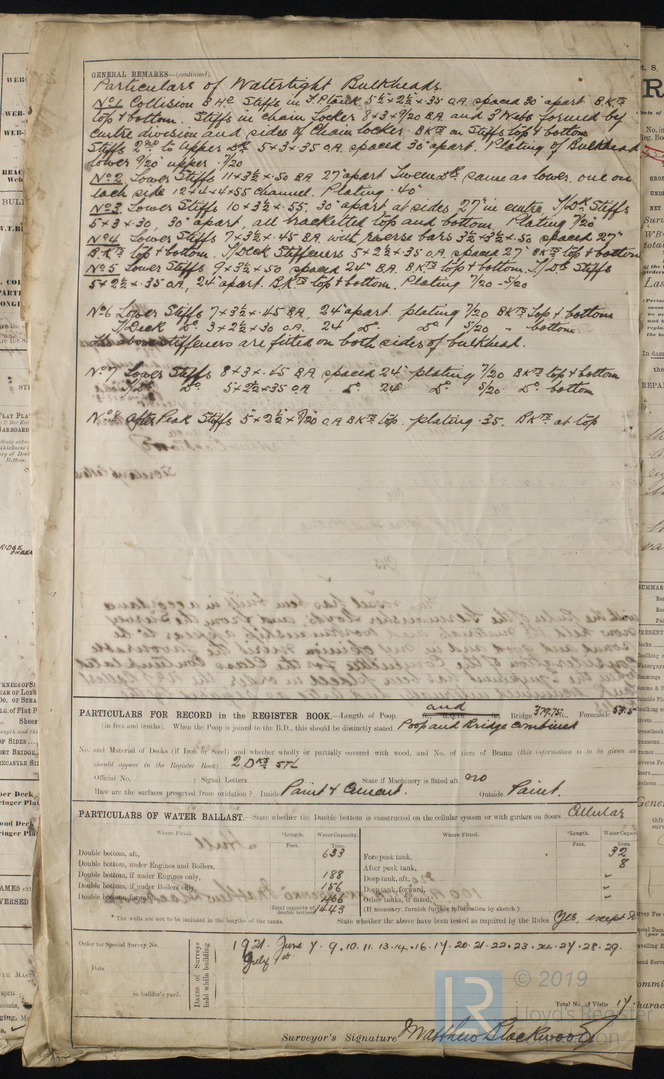 GENERAL REMARKS—(continued)
Particulars of Watertight Bulkheads.
No 1 Collision B.Hd Stiffs in F.P.tank 5½ × 2½ × .35 O.A. spaced 30" apart BKTs
top & bottom. Stiffs in chain locker 8 × 3 × 9/20 BA and 3 Webs formed by
centre division and sides of chain locker. BKTs on Stiffs top & bottom
Stiffs 2nd to upper Dk 5 × 3 × .35 O.A. spaced 30" apart. Plating of Bulkhead
lower 9/20 upper 7/20
No 2 Lower Stiffs 11 × 3½ × .50 BA 27" apart Tween Dk same as lower, one on
each side 12 × 4 × 4 × .55 channel. Plating .40"
No 3 Lower Stiffs 10 × 3½ × .55, 30" apart at sides 27" in centre. T/Dk Stiffs
5 × 3 × .30, 30" apart, all bracketted top and bottom Plating 7/20
No 4 Lower Stiffs 7 × 3½ × .45 BA with reverse bars 3½ × 3½ × .50 spaced 27"
BKTs top & bottom. T/Deck Stiffeners 5 × 2½ × .35 O.A. spaced 27" BKTs top & bottom
No 5 Lower Stiffs 9 × 3½ × .50 spaced 24" BA. BKTs top & bottom. T/Dk Stiffs
5 × 2½ × .35 O.A, 24" apart. BKTs top & bottom, Plating 7/20 - 5/20
No 6 Lower Stiffs 7 × 3½ × .45 BA, 24" apart plating 7/20 BKTs Top & bottom
T/Deck Do 3 × 2½ × 30 O.A. 24 Do Do 5/20 " bottom
The above stiffeners are fitted on both sides of bulkhead.
No 7 Lower Stiffs 8 × 3 × .45 BA spaced 24" plating 7/20 BKTs top & bottom
T/Dk Do 5 × 2½ × 35 O A Do 24 Do 5/20 Do bottom
No 8 After Peak Stiffs 5 × 2½ × 7/20 O.A BKTs top. plating .35. BKTs at top
PARTICULARS FOR RECORD in the REGISTER BOOK.—Length of Poop and Bridge 379.75 Forecastle 59.5
(in feet and tenths). When the Poop is joined to the B.D., this should be distinctly stated Poop and Bridge combined
No. and Material of Decks (if Iron or Steel) and whether wholly or partially covered with wood, and No. of tiers of Beams (this information is to be given as
should appear in the Register Book) 2 Dks STL
Official No. ; Signal Letters State if Machinery is fitted aft no
How are the surfaces preserved from oxidation? Inside Paint & Cement. Outside Paint.
PARTICULARS OF WATER BALLAST.—State whether the Double bottom is constructed on the cellular system or with girders on floors Cellular
Where Fitted. *Length. Water Capacity. Where Fitted. *Length. Water Capacity
Feet. Tons. Feet. Tons.
Double bottom, aft, 633 Fore peak tank, 32
Double bottom, under Engines and Boilers, After peak tank, 8
Double bottom, if under Engines only, 188 Deep tank, aft, "
Double bottom, if under Boilers only, 156 Deep tank, forward, "
Double bottom, forward, 466 Other tanks, if fitted, "
Total capacity of double bottom 1443 (If necessary, furnish further information by sketch.)
* The wells are not to be included in the lengths of the tanks. State whether the above have been tested as required by the Rules Yes, except
Order for Special Survey No.
Date
No. in builder's yard.
DATES of Surveys held while building
1921. June 7. 9. 10. 11. 13. 14. 16. 17. 20. 21. 22. 23. 24. 27. 28. 29.
July 1st
Total No. of Visits 17
Surveyor's Signature Matthew Blackwood
© 2019
Lloyd's Register